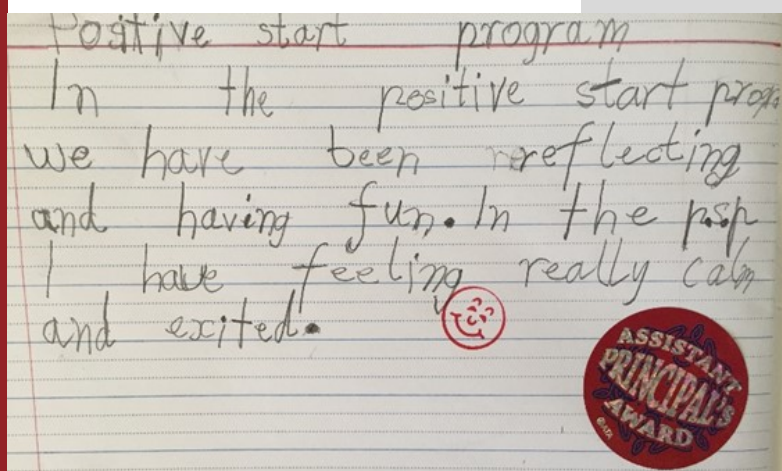 Positive start program
In the positive start progr
we have been reflecting
and having fun. In the p.s.p
I have feeling really calm
and exited.
ASSISTANT
PRINCIPAL'S
AWARD